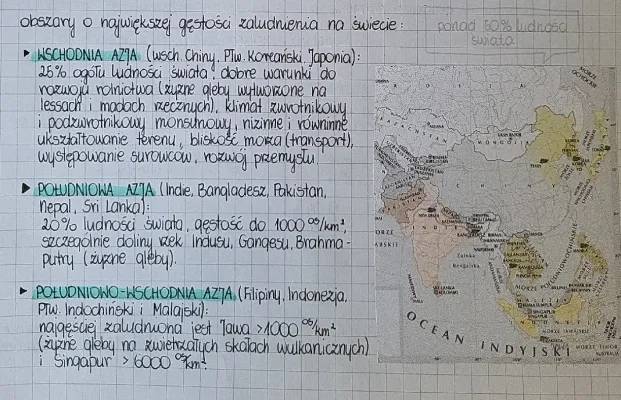 obszary o największej gęstości zaludnienia na świecie:
ponad 50% ludności
świata
▶ WSCHODNIA AZJA (wsch. Chiny, Płw. Koreański, Japonia):
25% ogółu ludności świata, dobre warunki do
rozwoju rolnictwa (żyzne gleby wytworzone na
lessach i madach rzecznych), klimat zwrotnikowy
i podzwrotnikowy monsunowy, nizinne i równinne
ukształtowanie terenu, bliskość morza (transport),
występowanie surowców, rozwój przemysłu
▶ POŁUDNIOWA AZJA (Indie, Bangladesz, Pakistan,
Nepal, Sri Lanka):
20% ludności świata, gęstość do 1000 os/km²,
szczególnie doliny rzek Indusu, Gangesu, Brahma-
putry (żyzne gleby).
▶ POŁUDNIOWO-WSCHODNIA AZJA (Filipiny, Indonezja,
Płw. Indochiński i Malajski):
najgęściej zaludniona jest Jawa >1000 os/km²
(żyzne gleby na zwietrzałych skałach wulkanicznych)
i Singapur > 6000 os/km²
MORZE
OCHOCKIE
KAZACHSTAN
MONGOLIA
CHINY
INDIE
Zatoka
Bengalska
SRI LANKA
MALEZJA
SINGAPUR
INDONEZJA
OCEAN INDYJSKI
MORZE TIMOR
AUSTRALIA